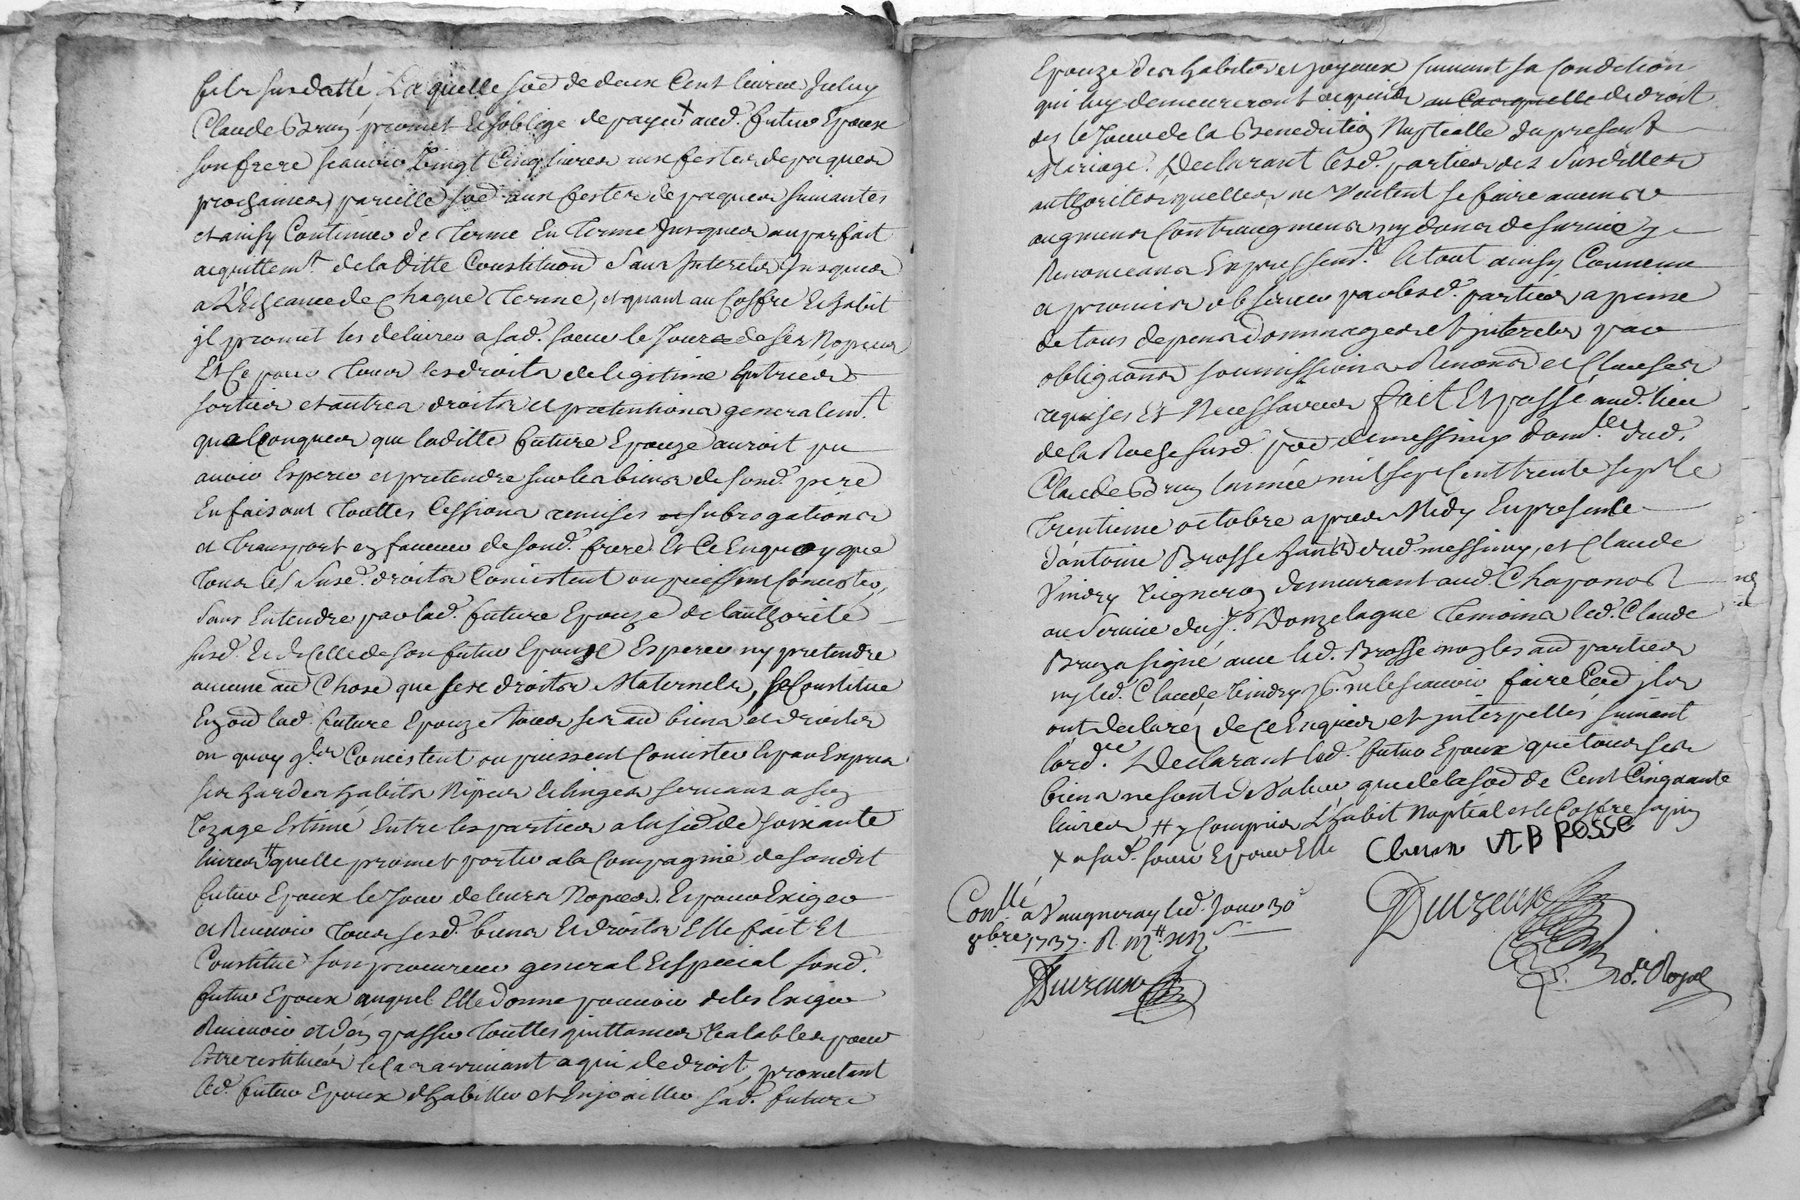 fils susdatté, Laquelle sôe de deux Cent livres Iceluy
Claude Brun promet Et soblige de payer x aud. futur Epoux
son frere scavoir Vingt Cinq livres aux festes de paques
prochaines, pareille sôe aux festes de paques suivantes
et ainsy Continuer de Terme En Terme Jusques au parfait
acquittemt. de la ditte Constitution Sans Interets Jusques
a L'Echeance de Chaque Terme, et quant au Coffre Et habit
jl promet les delivrer a sad. soeur le Jour de ses Nopces
Et Ce pour Tous les droits de legitime
sorties et autres droits et pretentions generalemt.
quelconques que laditte future Epouze auroit pu
avoir Esperer et pretendre sur les biens de sond. pere
En faisant Touttes Cessions remises et subrogations
et Transport en faveur de sond. frere Et Ce Enquoy que
Tous les Susd. droits Concistent ou puissent Concister,
Sans Entendre par lad. future Epouze de l'authorité
susd. Et de Celle de son futur Epoux Esperer ny pretendre
aucune au Chose que ses droits Maternels, se Constitue
En ou lad. future Epouze Tous ses au biens et droits
en quoy qls Concistent ou puissent Concister Et par Exprés
ses hardes habits Nipes Et linges servans a son
Uzage Estimé Entre les parties a la sôe de soixante
livres quelle promet porter a la Compagnie de sondit
futur Epoux le Jour de leurs Nopces. Et pour Exiger
et Recevoir Tous sesd. biens Et droits Elle fait Et
Constitue son procureur general Et special sond.
futur Epoux auquel Elle donne pouvoir de les Exiger
Recevoir et d'en passer Touttes quittances Valables pour
Estre restitués le Cas arrivant a qui de droit, prometant
led. futur Epoux d'habiller et Enjoailler sad. future
Epouze des habits et joyaux suivant sa Condition
qui luy demeureront acquis de droit
dez le Jour de la Benediction Nuptialle du present
Mariage. Declarant lesd. parties des Susdittes
authorités quelles ne Veulent se faire aucuns
augmens Contraugmens ny dons de survie y
Renonceans Expressemt. Le tout ainsy Convenu
et promis observer par lesd. parties a peine
de tous depens Dommages et Interets par
obligaons soumissions Renons et Clauses
requises Et Necessaires fait Et passé aud. lieu
de la Roche susd. pôe de messimy domlle. dud.
Claude Brun l'année mil sept Cent trente sept le
Trentieme octobre apres Midy En presence
d'antoine Brosse dud. messimy, et Claude
Vindry Vigneron demeurant aud. Chaponost
au Service du Sr. Donzelague Temoins led. Claude
Brun a signé avec led. Brosse non les au parties
ny led. Claude Vindry p. ne le scavoir faire Ce qd jls
ont declaré de Ce Enquis et Interpellés suivant
l'ordce. Declarant led. futur Epoux que tous ses
biens ne sont de Valeur que de la sôe de Cent Cinquante
livres y Compris L'habit Nuptial et le Coffre sapin
x a sad. soeur Epour Elle
C brun A BROSSE
Conllé. a Vaugneray led. Jour 30e
8bre 1737. R
Duizeux
Duizeux
No.re Royal